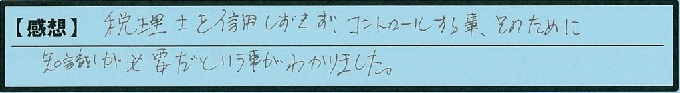 【感想】 税理士を信用しすぎず、コントロールする事、そのために
知識が必要だという事がわかりました。